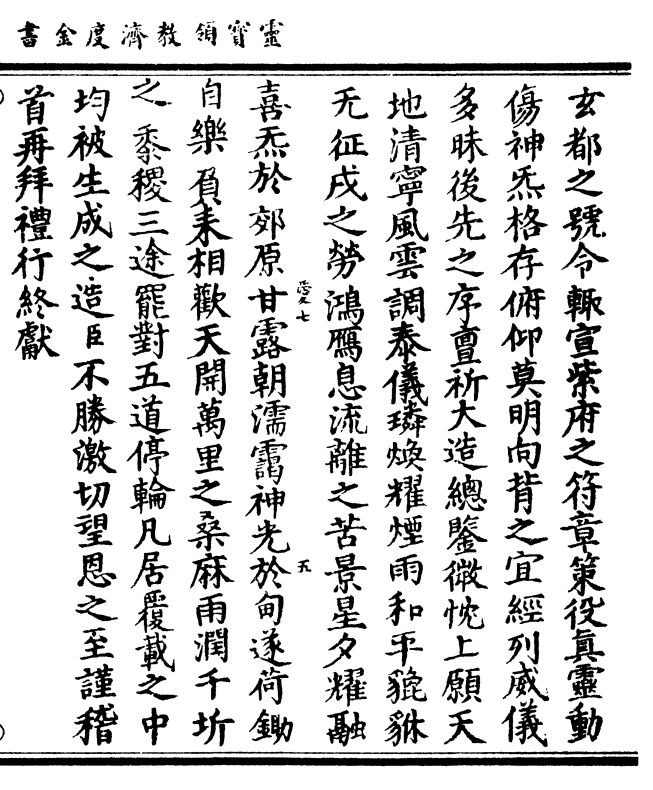 靈寶領教濟度金書
玄都之號令輙宣紫府之符章策役眞靈動
傷神炁格存俯仰莫明向背之宜經列威儀
多昧後先之序亶祈大造總鑒微忱上願天
地清寧風雲調泰儀璘煥耀煙雨和平貔貅
无征戍之勞鴻鴈息流離之苦景星夕耀融
喜炁於郊原甘露朝濡靄神光於甸遂荷鋤
自樂負耒相歡天開萬里之桑麻雨潤千圻
之黍稷三途罷對五道停輪凡居覆載之中
均被生成之造臣不勝激切望恩之至謹稽
首再拜禮行終獻
五